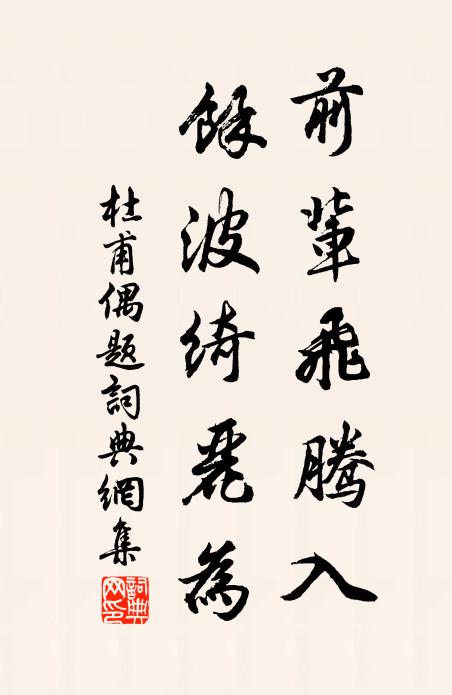 前輩飛騰入
餘波綺麗為
杜甫偶題詞典網集
詞典網印